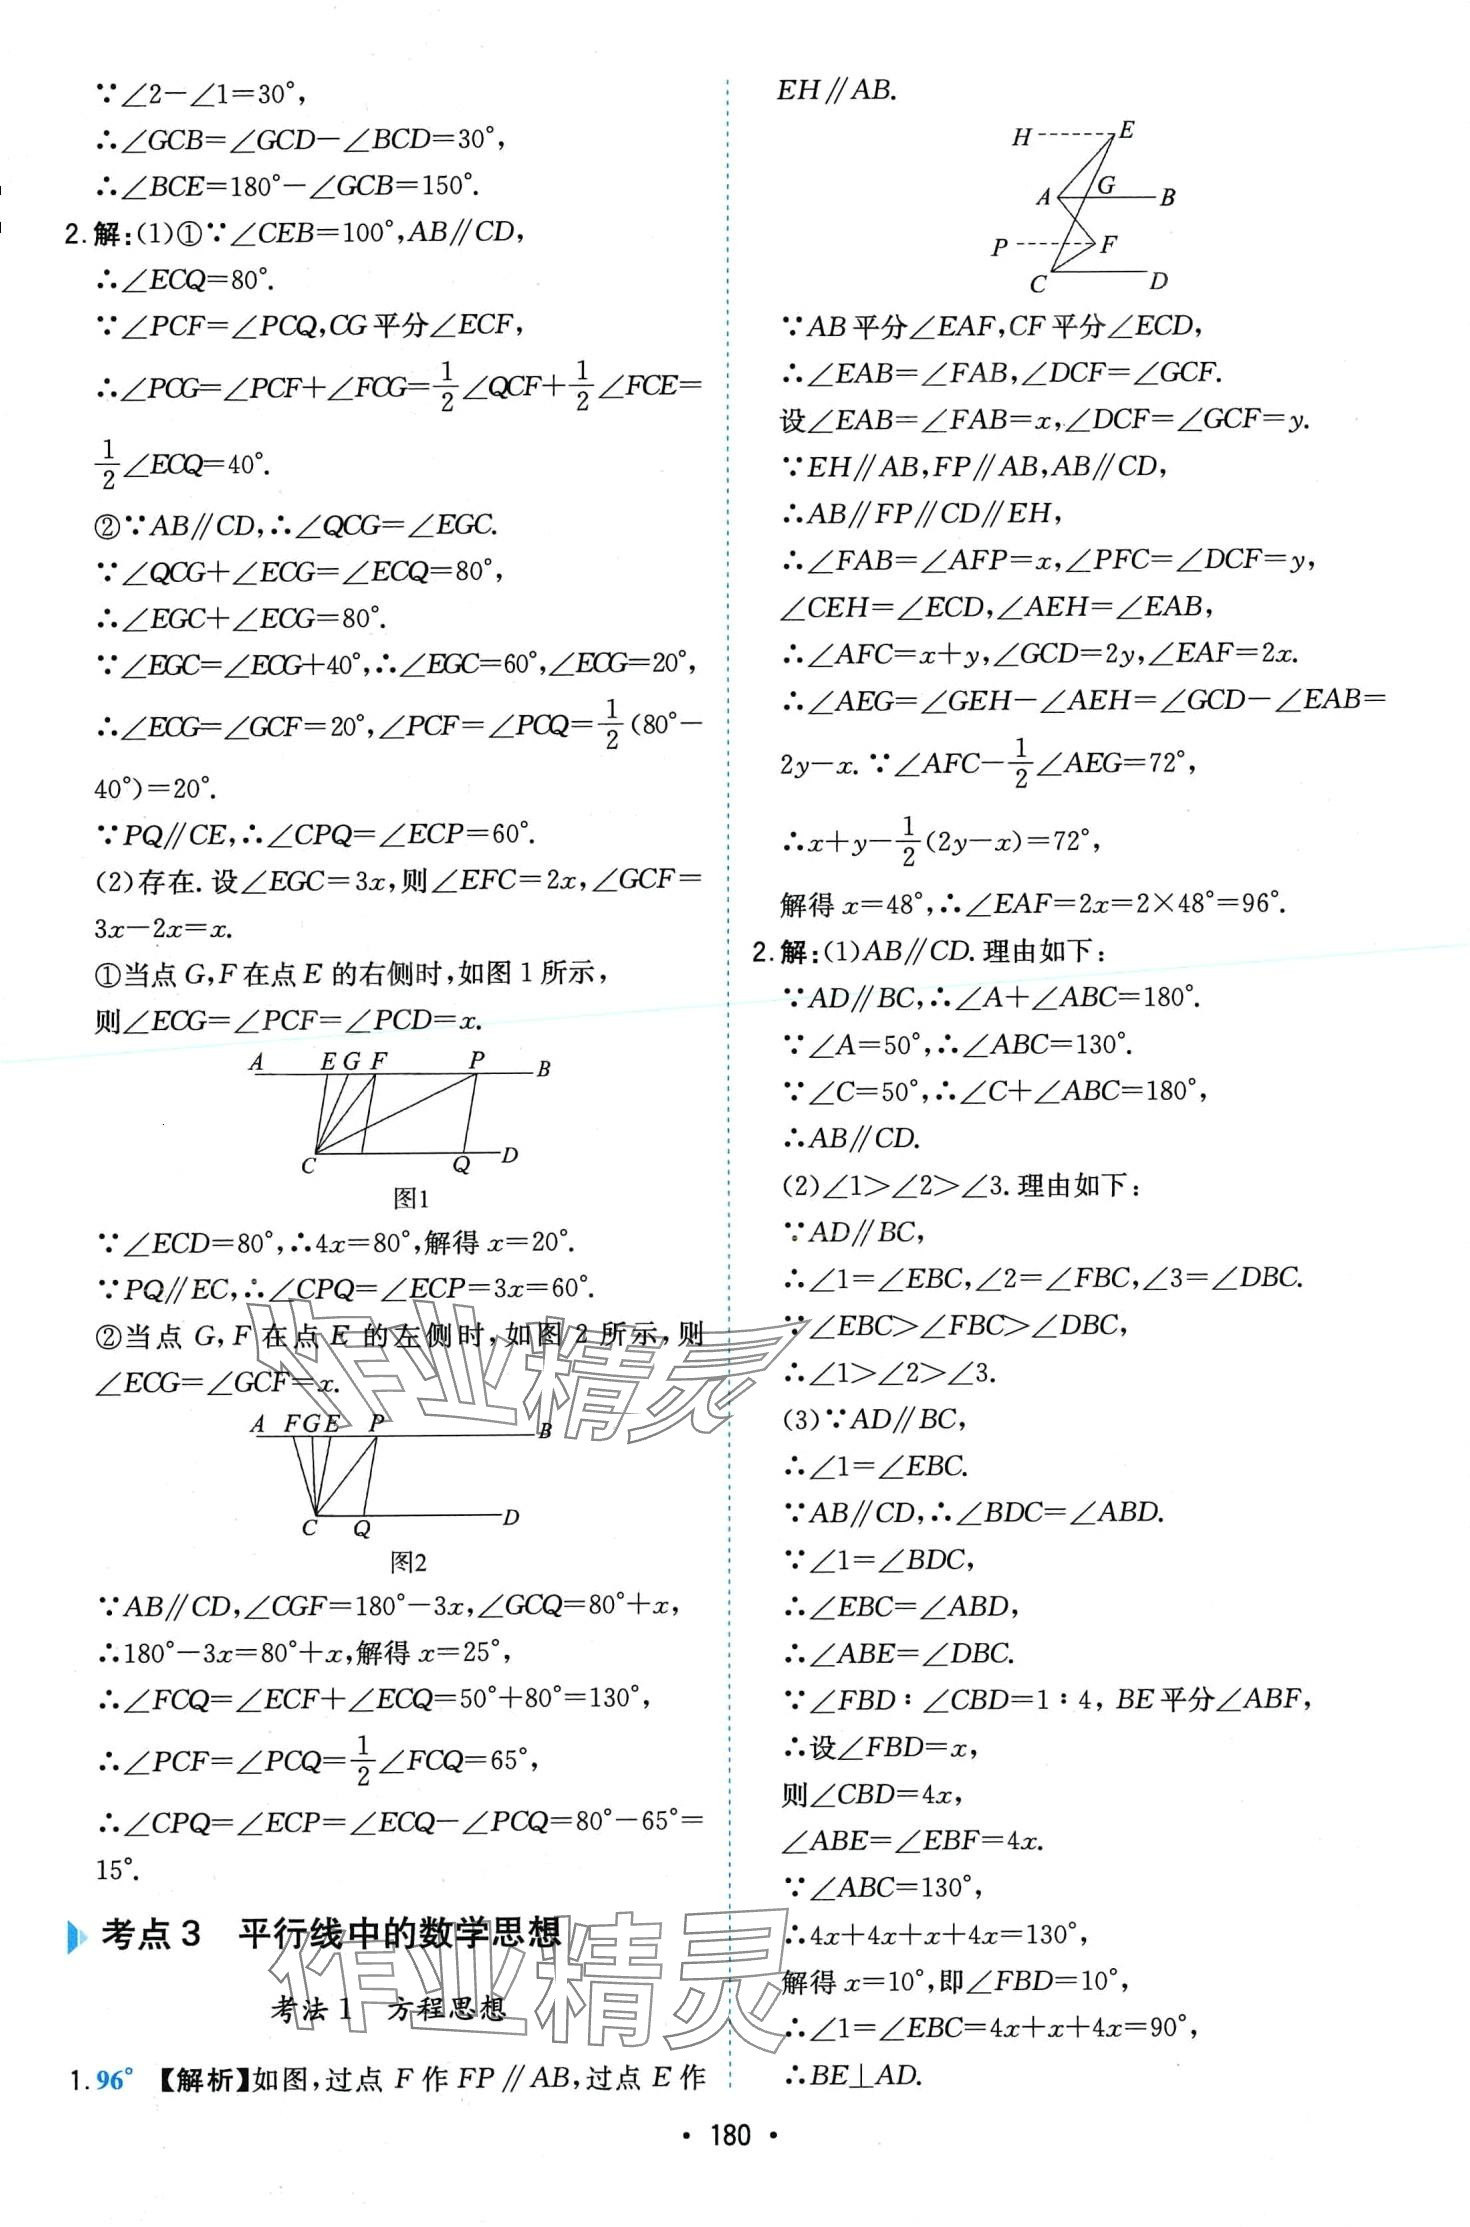 ∵∠2－∠1＝30°，
∴∠GCB＝∠GCD－∠BCD＝30°，
∴∠BCE＝180°－∠GCB＝150°.
2. 解：(1)①∵∠CEB＝100°，AB∥CD，
∴∠ECQ＝80°.
∵∠PCF＝∠PCQ，CG平分∠ECF，
∴∠PCG＝∠PCF＋∠FCG＝1/2∠QCF＋1/2∠FCE＝
1/2∠ECQ＝40°.
②∵AB∥CD，∴∠QCG＝∠EGC.
∵∠QCG＋∠ECG＝∠ECQ＝80°，
∴∠EGC＋∠ECG＝80°.
∵∠EGC＝∠ECG＋40°，∴∠EGC＝60°，∠ECG＝20°，
∴∠ECG＝∠GCF＝20°，∠PCF＝∠PCQ＝1/2(80°－
40°)＝20°.
∵PQ∥CE，∴∠CPQ＝∠ECP＝60°.
(2)存在. 设∠EGC＝3x，则∠EFC＝2x，∠GCF＝
3x－2x＝x.
①当点 G，F 在点 E 的右侧时，如图 1 所示，
则∠ECG＝∠PCF＝∠PCD＝x.
A E G F P B
C Q D
图1
∵∠ECD＝80°，∴4x＝80°，解得 x＝20°.
∵PQ∥EC，∴∠CPQ＝∠ECP＝3x＝60°.
②当点 G，F 在点 E 的左侧时，如图 2 所示，则
∠ECG＝∠GCF＝x.
A F G E P B
C Q D
图2
∵AB∥CD，∠CGF＝180°－3x，∠GCQ＝80°＋x，
∴180°－3x＝80°＋x，解得 x＝25°，
∴∠FCQ＝∠ECF＋∠ECQ＝50°＋80°＝130°，
∴∠PCF＝∠PCQ＝1/2∠FCQ＝65°，
∴∠CPQ＝∠ECP＝∠ECQ－∠PCQ＝80°－65°＝
15°.
考点 3 平行线中的数学思想
考法 1 方程思想
1. 96° 【解析】如图，过点 F 作 FP∥AB，过点 E 作
EH∥AB.
H E
A G B
P F
C D
∵AB 平分∠EAF，CF 平分∠ECD，
∴∠EAB＝∠FAB，∠DCF＝∠GCF.
设∠EAB＝∠FAB＝x，∠DCF＝∠GCF＝y.
∵EH∥AB，FP∥AB，AB∥CD，
∴AB∥FP∥CD∥EH，
∴∠FAB＝∠AFP＝x，∠PFC＝∠DCF＝y，
∠CEH＝∠ECD，∠AEH＝∠EAB，
∴∠AFC＝x＋y，∠GCD＝2y，∠EAF＝2x.
∴∠AEG＝∠GEH－∠AEH＝∠GCD－∠EAB＝
2y－x. ∵∠AFC－1/2∠AEG＝72°，
∴x＋y－1/2(2y－x)＝72°，
解得 x＝48°，∴∠EAF＝2x＝2×48°＝96°.
2. 解：(1)AB∥CD. 理由如下：
∵AD∥BC，∴∠A＋∠ABC＝180°.
∵∠A＝50°，∴∠ABC＝130°.
∵∠C＝50°，∴∠C＋∠ABC＝180°，
∴AB∥CD.
(2)∠1＞∠2＞∠3. 理由如下：
∵AD∥BC，
∴∠1＝∠EBC，∠2＝∠FBC，∠3＝∠DBC.
∵∠EBC＞∠FBC＞∠DBC，
∴∠1＞∠2＞∠3.
(3)∵AD∥BC，
∴∠1＝∠EBC.
∵AB∥CD，∴∠BDC＝∠ABD.
∵∠1＝∠BDC，
∴∠EBC＝∠ABD，
∴∠ABE＝∠DBC.
∵∠FBD∶∠CBD＝1∶4，BE 平分∠ABF，
∴设∠FBD＝x，
则∠CBD＝4x，
∠ABE＝∠EBF＝4x.
∵∠ABC＝130°，
∴4x＋4x＋x＋4x＝130°，
解得 x＝10°，即∠FBD＝10°，
∴∠1＝∠EBC＝4x＋x＋4x＝90°，
∴BE⊥AD.
• 180 •
作业精灵
作业精灵